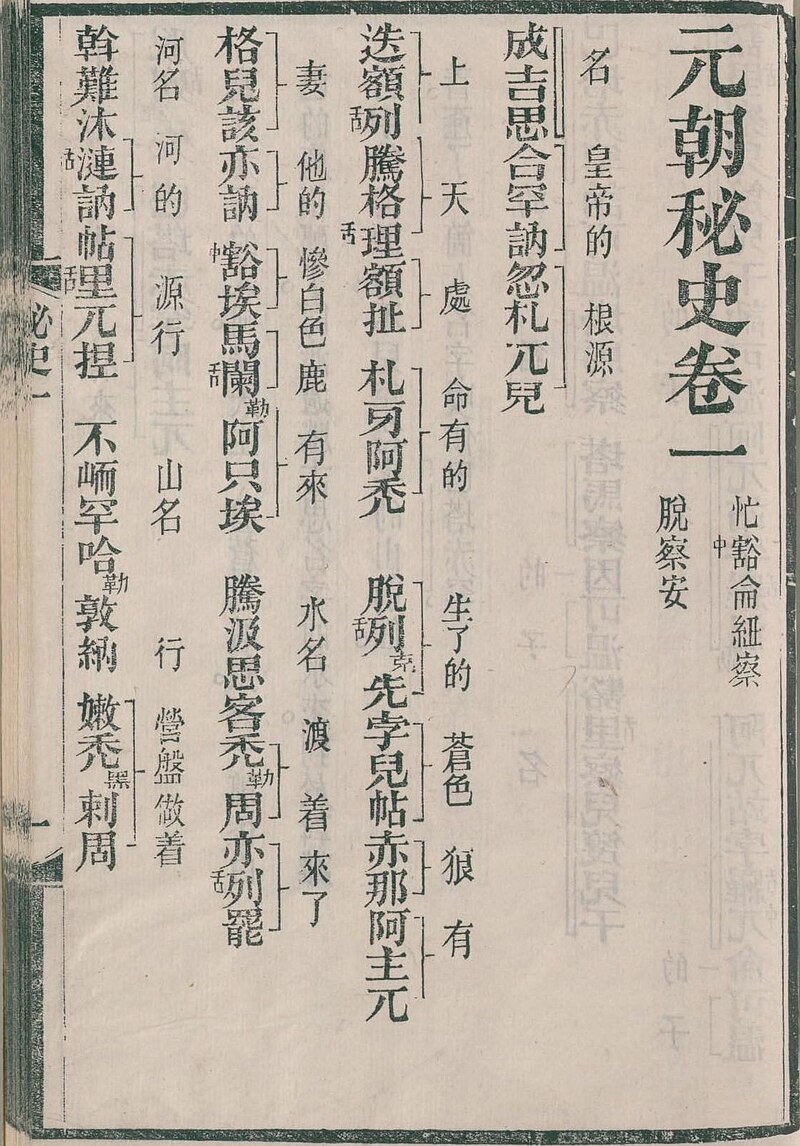 元朝秘史卷一
忙中豁侖紐察
脫察安
名 皇帝的 根源
成吉思合罕訥忽札兀兒
上 天 處 命有的 生了的 蒼色 狼 有
迭額舌列騰格舌理額扯札牙阿禿脫舌列克先孛兒帖赤那阿主兀
妻 他的 慘白色 鹿 有來 水名 渡着 來了
格兒該亦訥中豁埃馬舌闌勒阿只埃騰汲思客禿勒周亦舌列罷
河名 河的 源行 山名 行 營盤做着
斡難沐舌漣訥帖舌里兀揑不峏罕哈勒敦納嫩禿黑剌周
秘史一
一